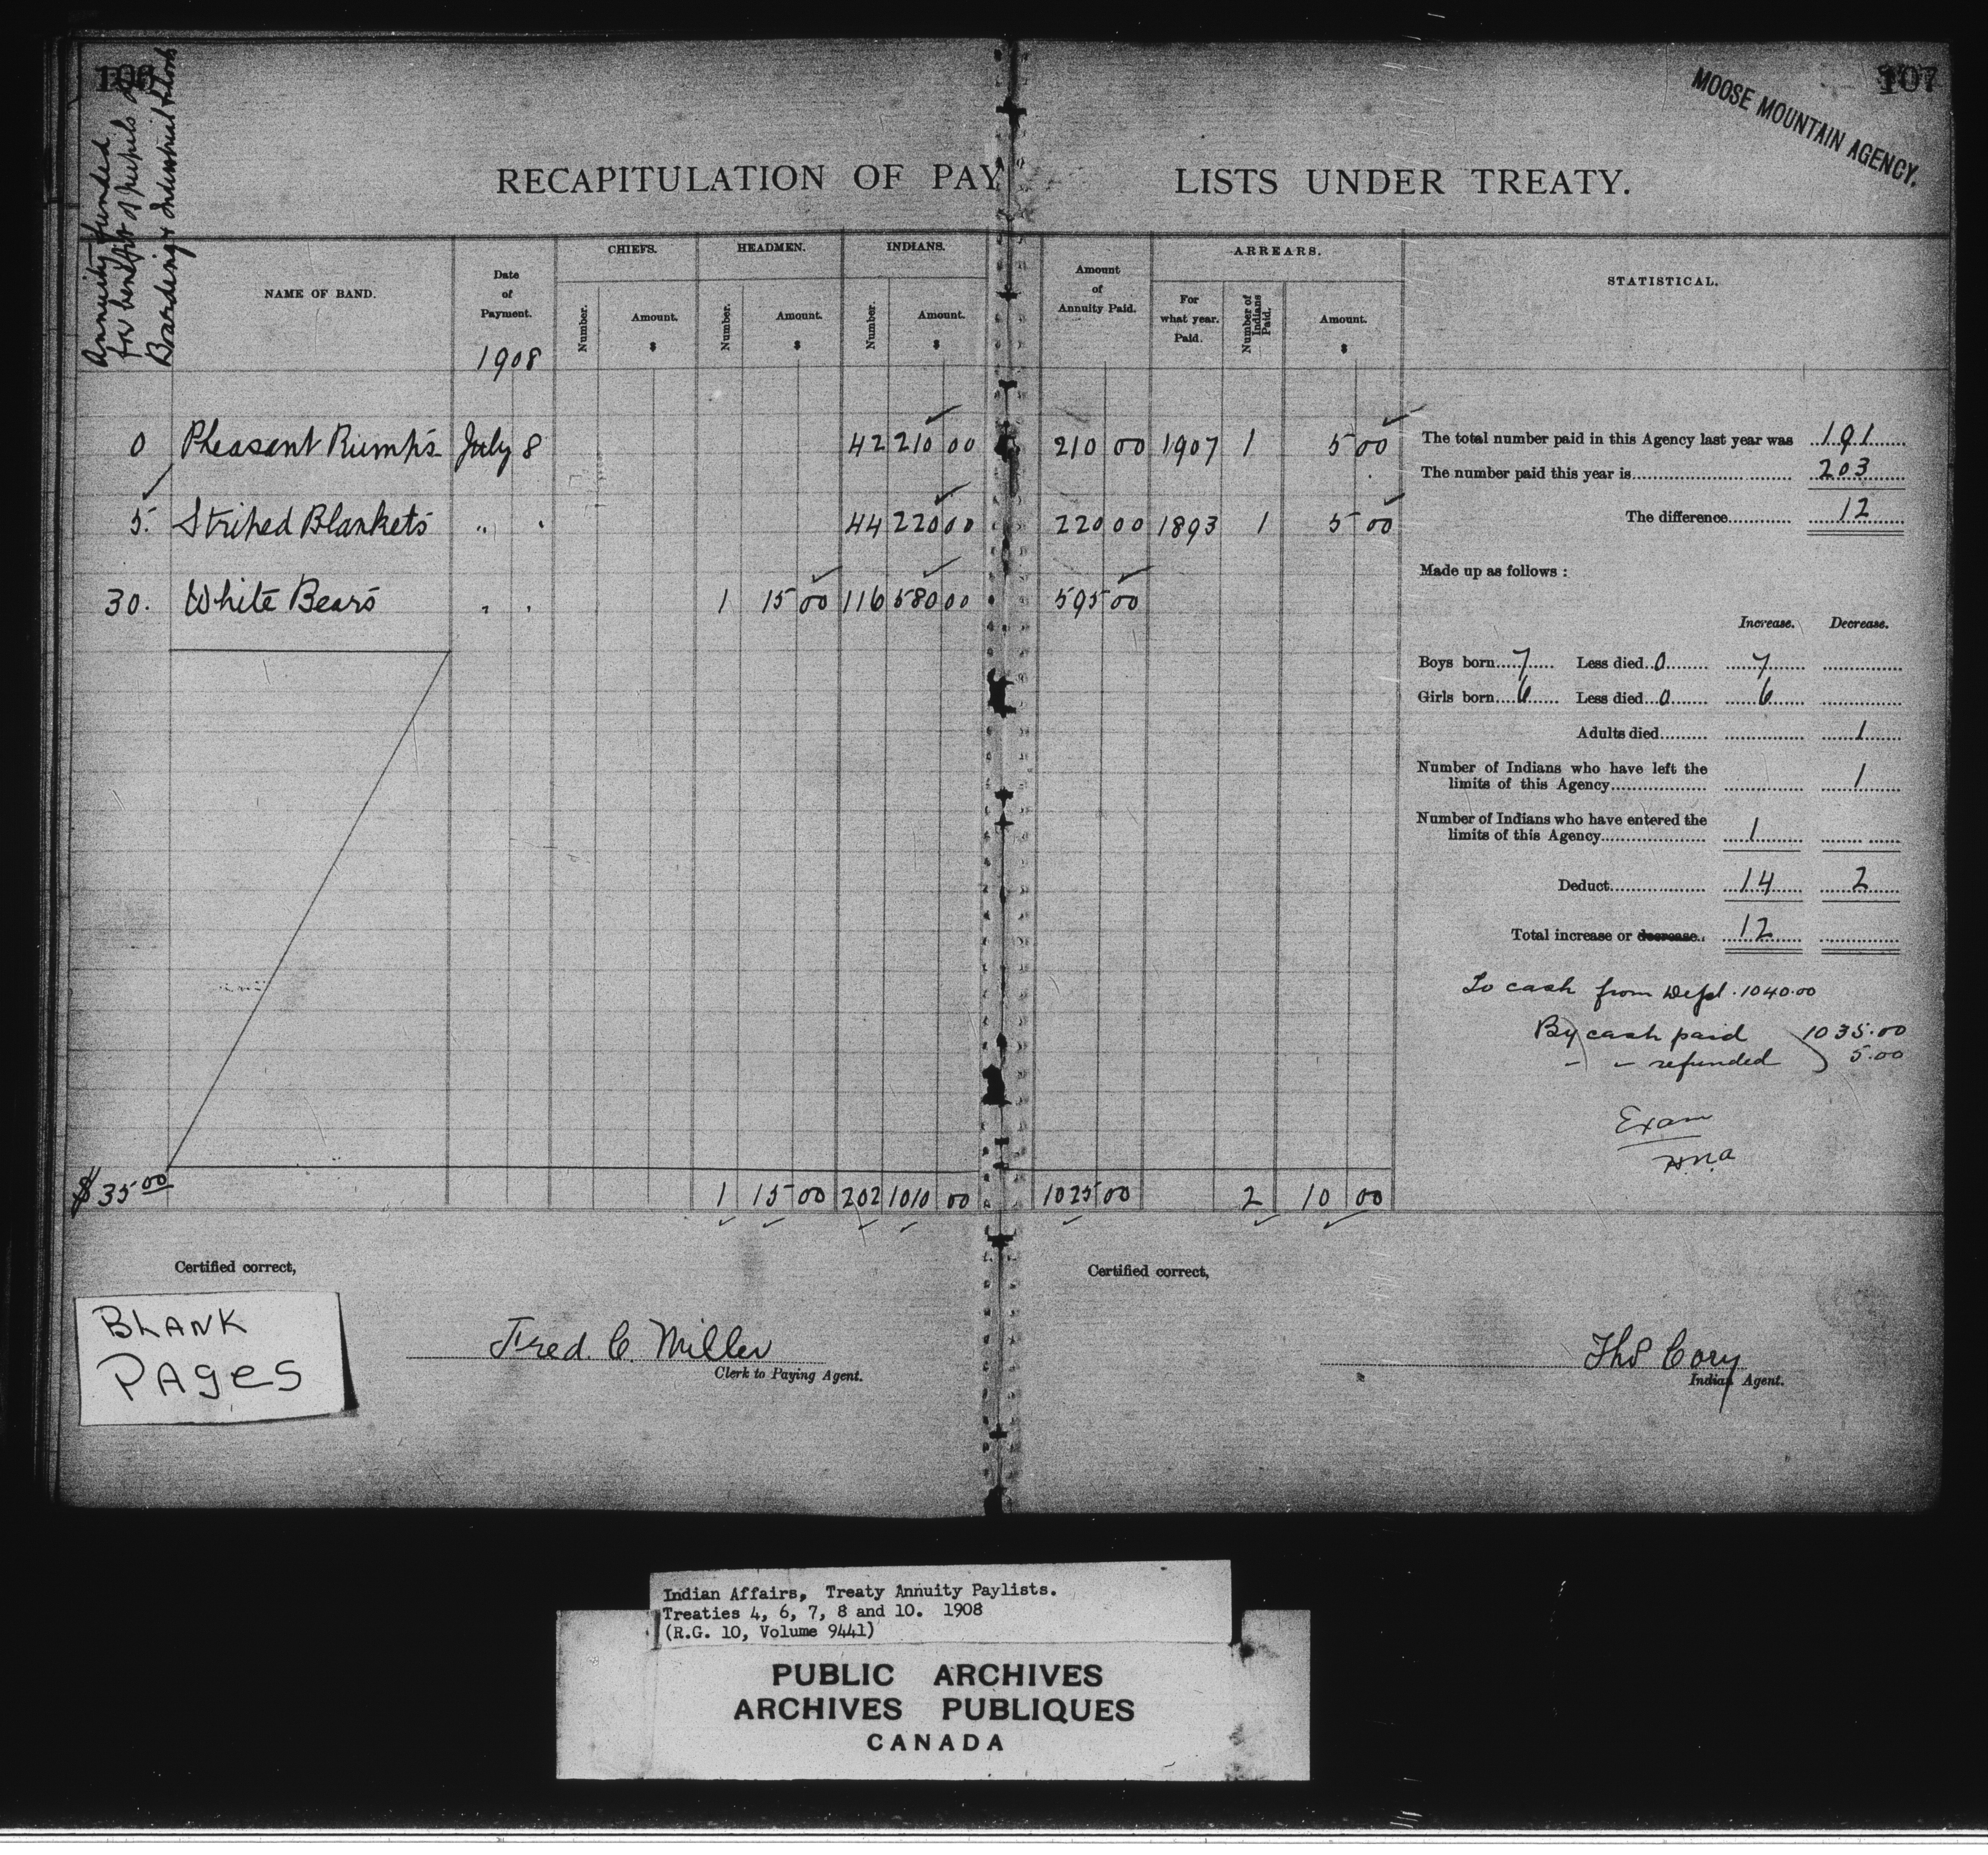 106
107
MOOSE MOUNTAIN AGENCY.
Annuity funded
for benefit of pupils
Boarding & Industrial Schools
RECAPITULATION OF PAY LISTS UNDER TREATY.
NAME OF BAND.
Date of Payment.
1908
CHIEFS.
Number.
Amount.
$
HEADMEN.
Number.
Amount.
$
INDIANS.
Number
Amount.
$
Amount of Annuity Paid.
ARREARS.
For what year. Paid.
Number of Indians Paid.
Amount.
$
STATISTICAL.
0 Pheasant Rump's July 8 42 210 00 210 00 1907 1 5 00
5. Striped Blankets " " 44 220 00 220 00 1893 1 5 00
30. White Bears " " 1 15 00 116 580 00 595 00
$35 00 1 15 00 202 1010 00 1025 00 2 10 00
The total number paid in this Agency last year was 191
The number paid this year is 203
The difference 12
Made up as follows :
Increase. Decrease.
Boys born 7 Less died 0 7
Girls born 6 Less died 0 6
Adults died 1
Number of Indians who have left the
limits of this Agency 1
Number of Indians who have entered the
limits of this Agency 1
Deduct 14 2
Total increase or decrease. 12
To cash from Dept. 1040.00
By cash paid 1035.00
" " refunded 5.00
Exam
H.N.A
Certified correct,
Fred. C. Miller
Clerk to Paying Agent.
Certified correct,
Thos Cory
Indian Agent.
BLANK
PAGES
Indian Affairs, Treaty Annuity Paylists.
Treaties 4, 6, 7, 8 and 10. 1908
(R.G. 10, Volume 9441)
PUBLIC ARCHIVES
ARCHIVES PUBLIQUES
CANADA